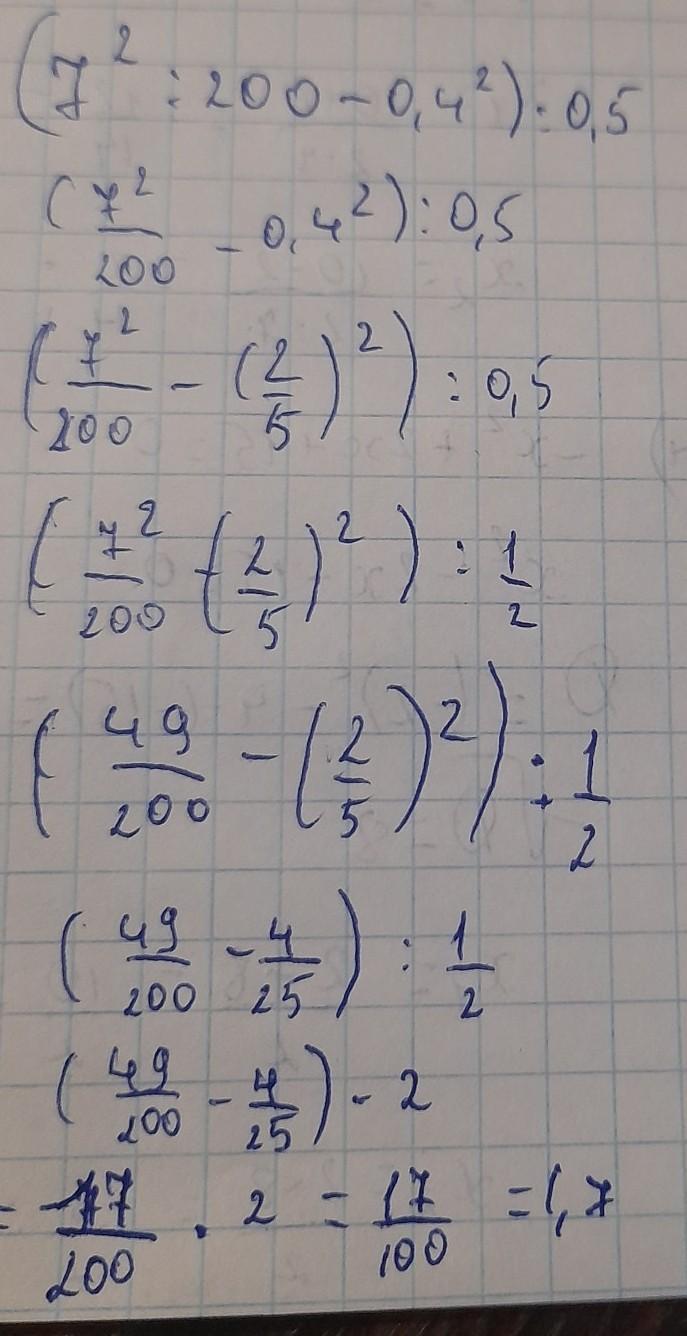 (7² : 200 - 0,4²) : 0,5
(7²/200 - 0,4²) : 0,5
(7²/200 - (2/5)²) : 0,5
(7²/200 - (2/5)²) : 1/2
(49/200 - (2/5)²) : 1/2
(49/200 - 4/25) : 1/2
(49/200 - 4/25) · 2
= 17/200 · 2 = 17/100 = 1,7